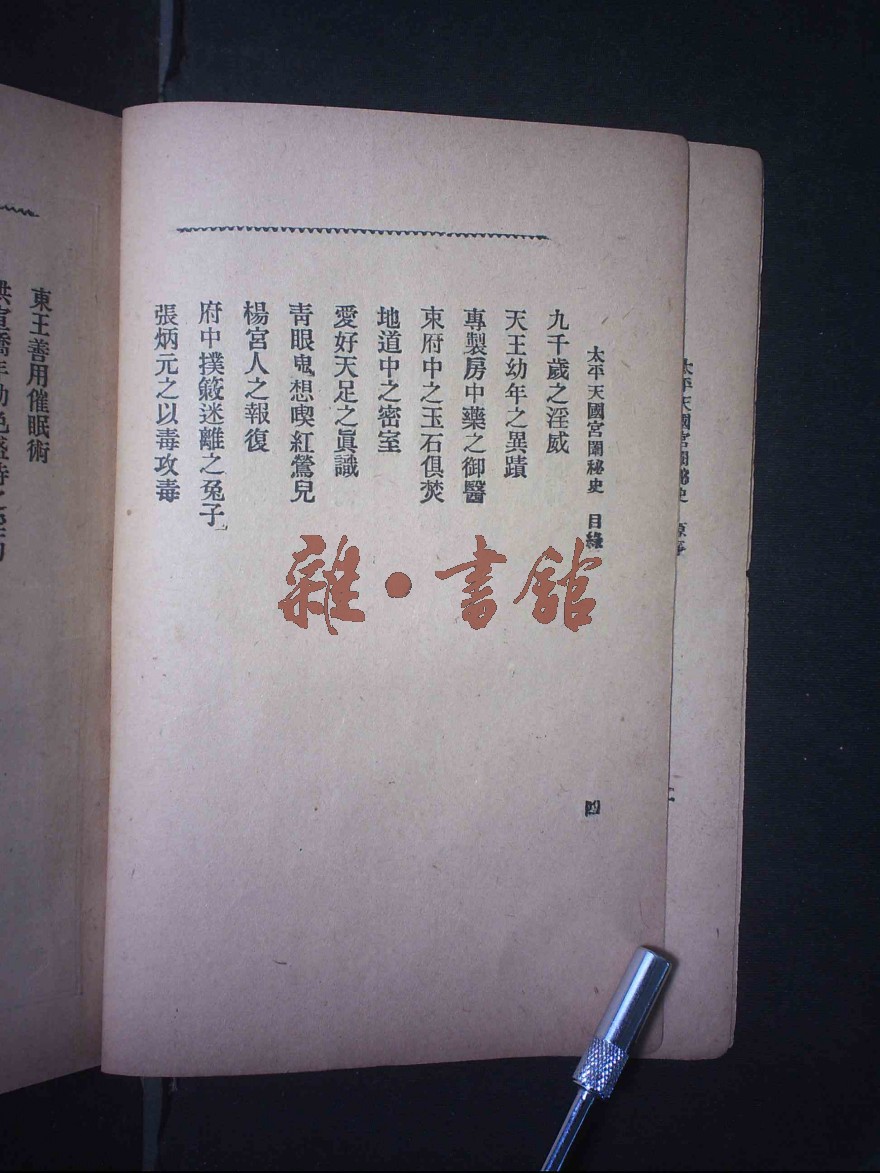 太平天國宮闈秘史 目錄
九千歲之淫威
天王幼年之異蹟
專製房中藥之御醫
東府中之玉石俱焚
地道中之密室
愛好天足之眞諴
靑眼鬼想喫紅鶯兒
楊宮人之報復
府中撲簌迷離之兔子
張炳元之以毒攻毒
四
東王善用催眠術
太平天國宮闈秘史
雜·書館